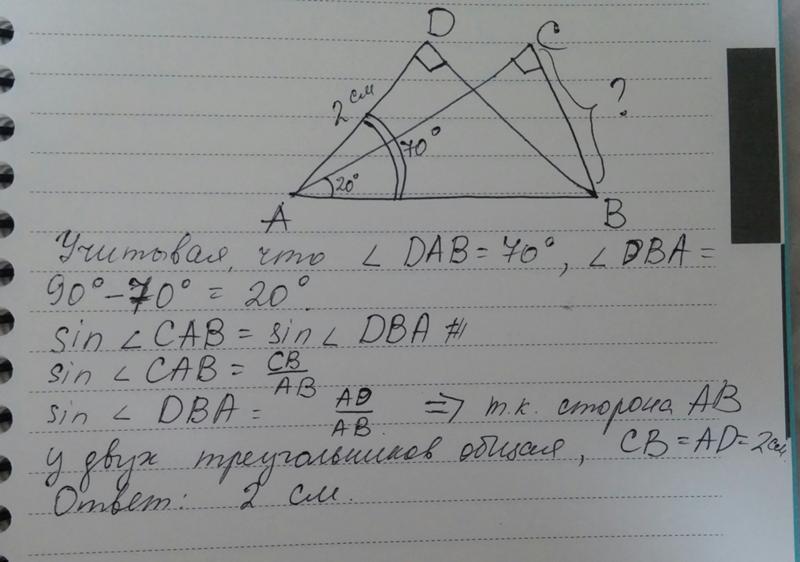 D
C
2 см
?
70°
20°
A
B
Учитывая, что ∠ DAB = 70°, ∠ DBA =
90° - 70° = 20°.
sin ∠ CAB = sin ∠ DBA
sin ∠ CAB = CB/AB
sin ∠ DBA = AD/AB => т.к. сторона AB
у двух треугольников общая, CB = AD = 2 см.
Ответ: 2 см.